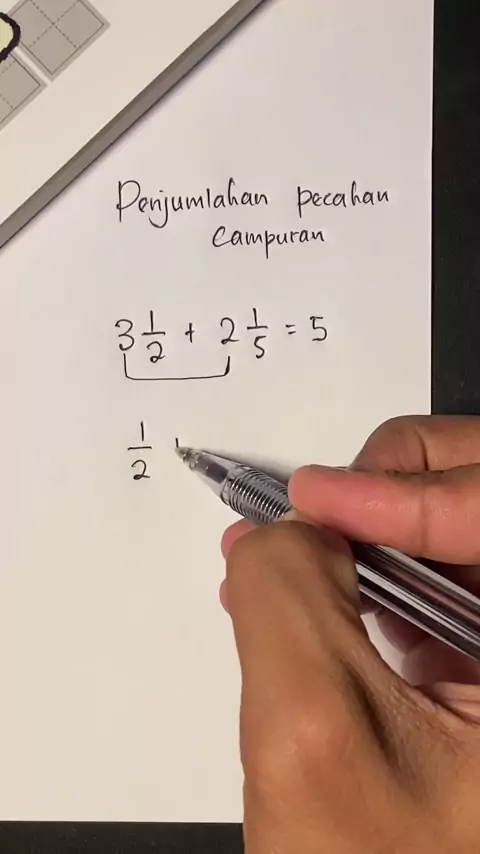 Penjumlahan pecahan
campuran
3 1/2 + 2 1/5 = 5
1/2